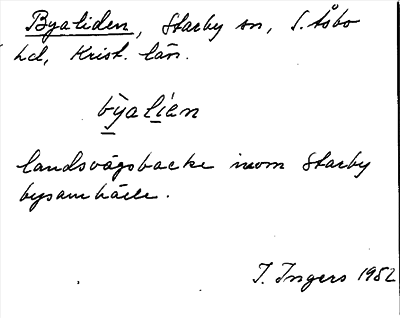 Byaliden, Starby sn, S. Åsbo
hd, Krist. län.
býalíen
landsvägsbacke inom Starby
bysamhälle.
I. Ingers 1952